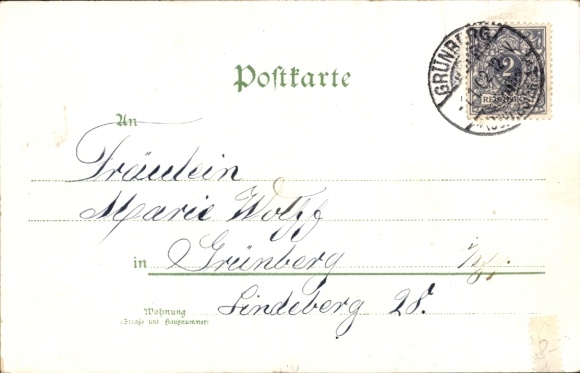 GRÜNBERG
2
REICHSPOST
Postkarte
An
Fräulein
Marie Wolff
in Grünberg
Lindeberg 28.
Wohnung
(Straße und Hausnummer)